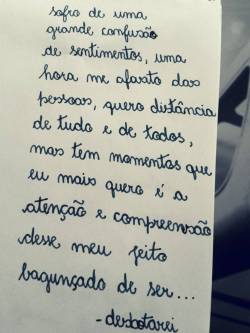 sofro de uma
grande confusão
de sentimentos, uma
hora me afasto das
pessoas, quero distância
de tudo e de todos,
mas tem momentos que
eu mais quero é a
atenção e compreensão
desse meu jeito
bagunçado de ser...
- desbotarei